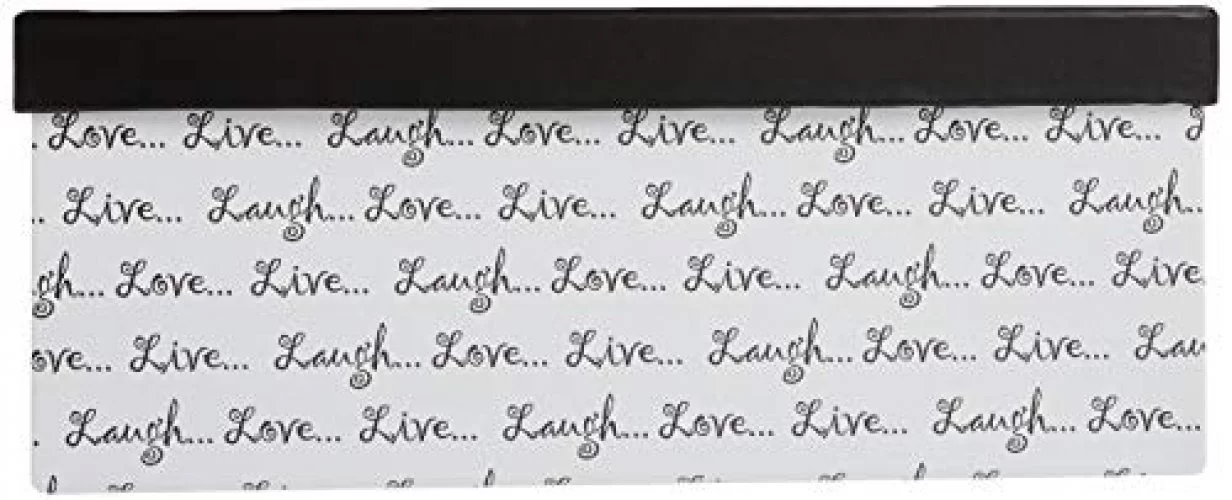 . Love... Live... Laugh... Love... Live... Laugh... Love... Live...
.. Live... Laugh... Love... Live... Laugh... Love... Live... Laugh..
gh... Love... Live... Laugh... Love... Live... Laugh... Love... Live
ove... Live... Laugh... Love... Live... Laugh... Love... Live... Lau
. Laugh... Love... Live... Laugh... Love... Live... Laugh... Love...